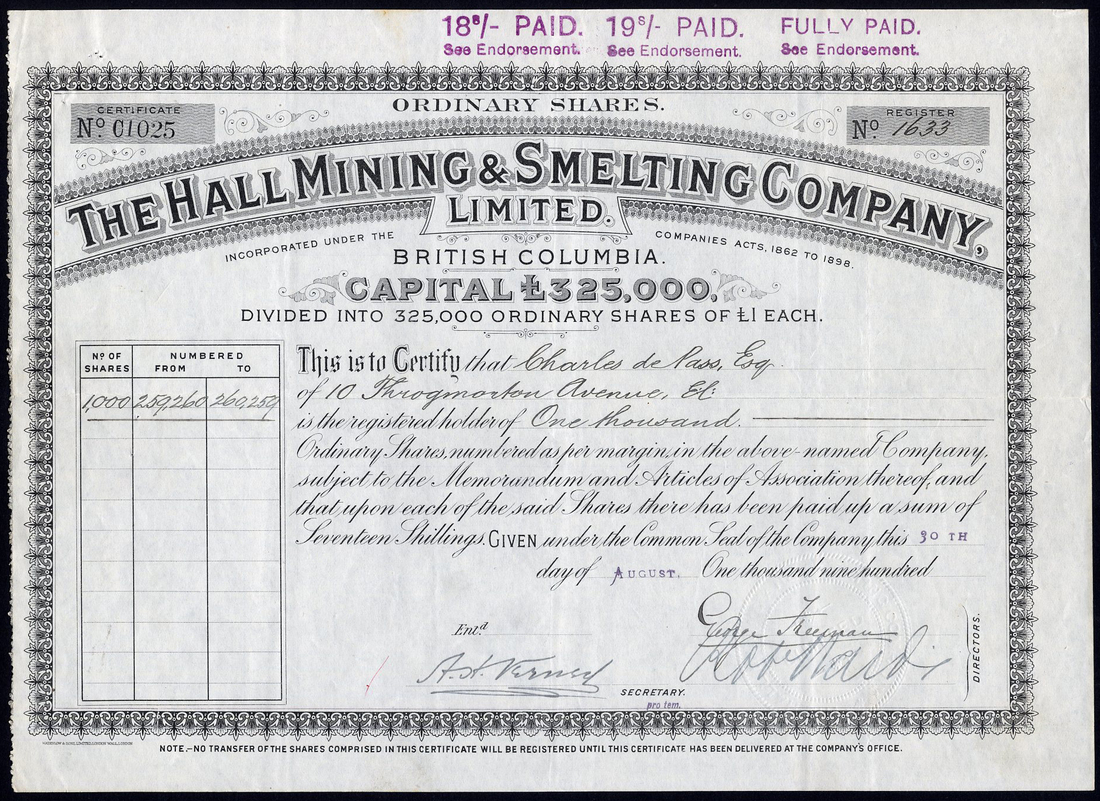 18s/- PAID. 19s/- PAID. FULLY PAID.
See Endorsement. See Endorsement. See Endorsement.
ORDINARY SHARES.
CERTIFICATE
No 01025
REGISTER
No. 1633
THE HALL MINING & SMELTING COMPANY,
LIMITED.
INCORPORATED UNDER THE COMPANIES ACTS, 1862 TO 1898.
BRITISH COLUMBIA.
CAPITAL £325,000.
DIVIDED INTO 325,000 ORDINARY SHARES OF £1 EACH.
No OF SHARES NUMBERED FROM TO
1,000 259,260 260,259
This is to Certify that Charles de Pass, Esq.
of 10 Throgmorton Avenue, E.C.
is the registered holder of One thousand.
Ordinary Shares, numbered as per margin, in the above-named Company,
subject to the Memorandum and Articles of Association thereof, and
that upon each of the said Shares there has been paid up a sum of
Seventeen Shillings. GIVEN under the Common Seal of the Company this 30TH
day of AUGUST. One thousand nine hundred
Entd
George Freeman
DIRECTORS.
SECRETARY.
pro tem.
NOTE.–NO TRANSFER OF THE SHARES COMPRISED IN THIS CERTIFICATE WILL BE REGISTERED UNTIL THIS CERTIFICATE HAS BEEN DELIVERED AT THE COMPANY'S OFFICE.